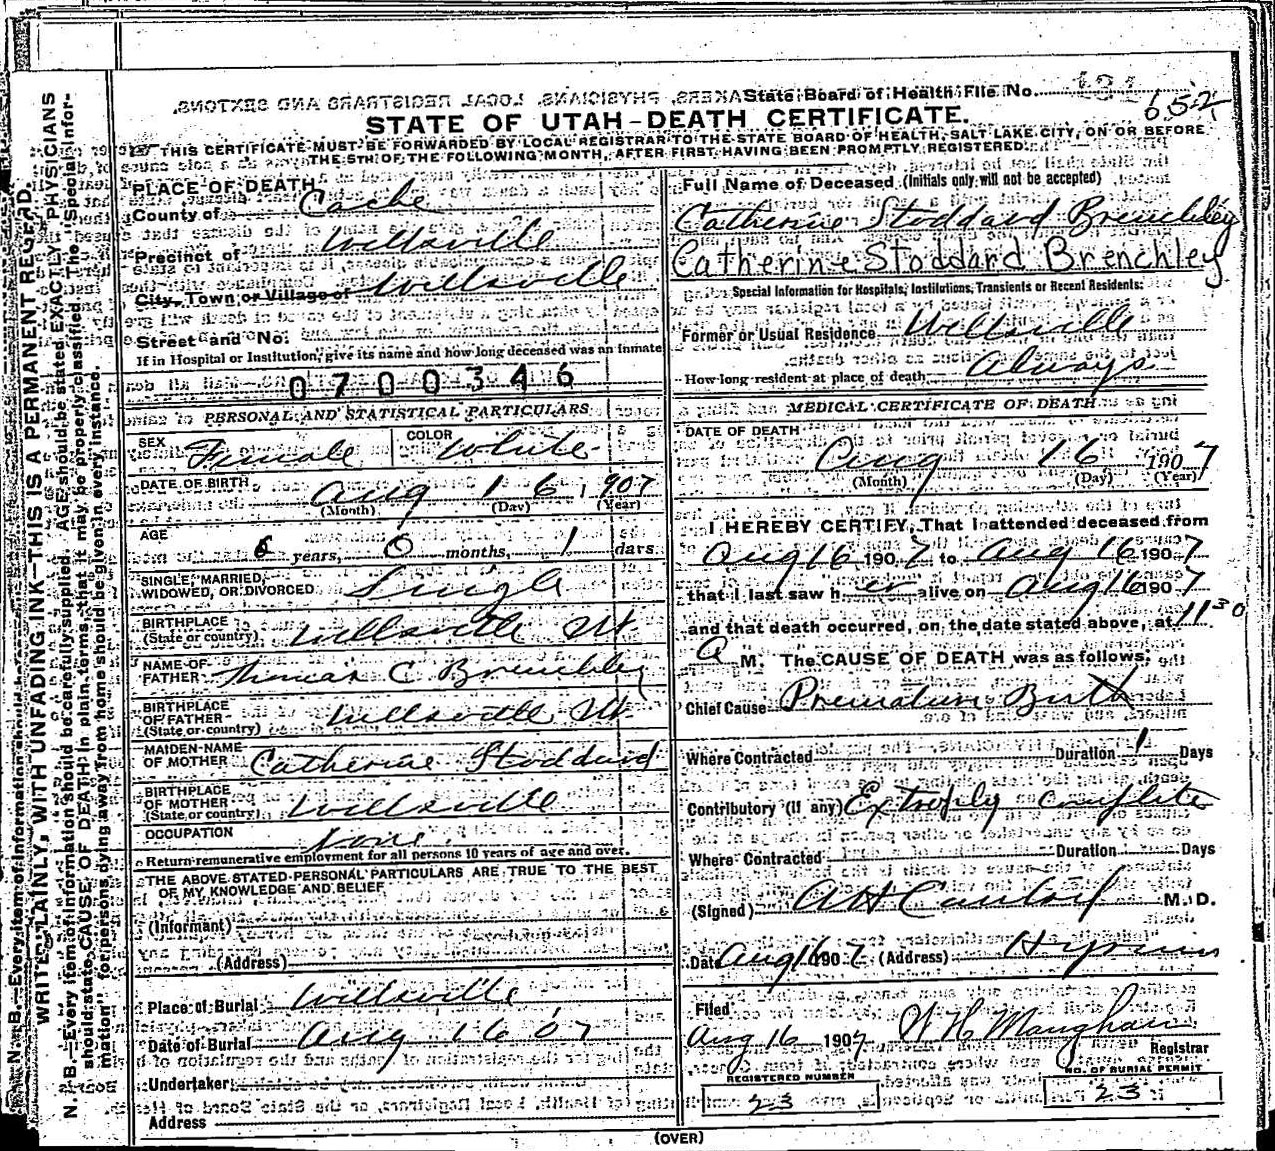 State Board of Health File No. 131
652
STATE OF UTAH-DEATH CERTIFICATE.
THIS CERTIFICATE MUST BE FORWARDED BY LOCAL REGISTRAR TO THE STATE BOARD OF HEALTH, SALT LAKE CITY, ON OR BEFORE
THE 5TH OF THE FOLLOWING MONTH, AFTER FIRST HAVING BEEN PROMPTLY REGISTERED.
PLACE OF DEATH
County of Cache
Precinct of Wellsville
City, Town or Village of Wellsville
Street and No.
If in Hospital or Institution, give its name and how long deceased was an inmate
0700346
PERSONAL AND STATISTICAL PARTICULARS
SEX Female COLOR White
DATE OF BIRTH Aug 16, 1907
(Month) (Day) (Year)
AGE years, 0 months, 1 days
SINGLE, MARRIED, WIDOWED, OR DIVORCED Single
BIRTHPLACE (State or country) Wellsville Ut.
NAME OF FATHER Thomas C Brenchley
BIRTHPLACE OF FATHER (State or country) Wellsville Ut.
MAIDEN NAME OF MOTHER Catherine Stoddard
BIRTHPLACE OF MOTHER (State or country) Wellsville
OCCUPATION None
Return remunerative employment for all persons 10 years of age and over.
THE ABOVE STATED PERSONAL PARTICULARS ARE TRUE TO THE BEST
OF MY KNOWLEDGE AND BELIEF
(Informant)
(Address)
Place of Burial Wellsville
Date of Burial Aug 16 07
Undertaker
Address
Full Name of Deceased (Initials only will not be accepted)
Catherine Stoddard Brenchley
Catherine Stoddard Brenchley
Special Information for Hospitals, Institutions, Transients or Recent Residents:
Former or Usual Residence Wellsville
How long resident at place of death Always
MEDICAL CERTIFICATE OF DEATH
DATE OF DEATH
Aug 16 1907
(Month) (Day) (Year)
I HEREBY CERTIFY, That I attended deceased from
Aug 16 1907 to Aug 16 1907
that I last saw her alive on Aug 16 1907
and that death occurred, on the date stated above, at 11 30
A M. The CAUSE OF DEATH was as follows:
Chief Cause Premature Birth
Where Contracted Duration 1 Days
Contributory (if any) Extrophy complete
Where Contracted Duration Days
(Signed) M. D.
Date Aug 16 1907 (Address) Hyrum
Filed
Aug 16 1907 W H Maughan
Registrar
REGISTERED NUMBER
23
NO. OF BURIAL PERMIT
23
(OVER)
WRITE PLAINLY, WITH UNFADING INK—THIS IS A PERMANENT RECORD.
N. B.—Every item of information should be carefully supplied. AGE should be stated EXACTLY. PHYSICIANS
should state CAUSE OF DEATH in plain terms, that it may be properly classified. The "Special Infor-
mation" for persons dying away from home should be given in every instance.